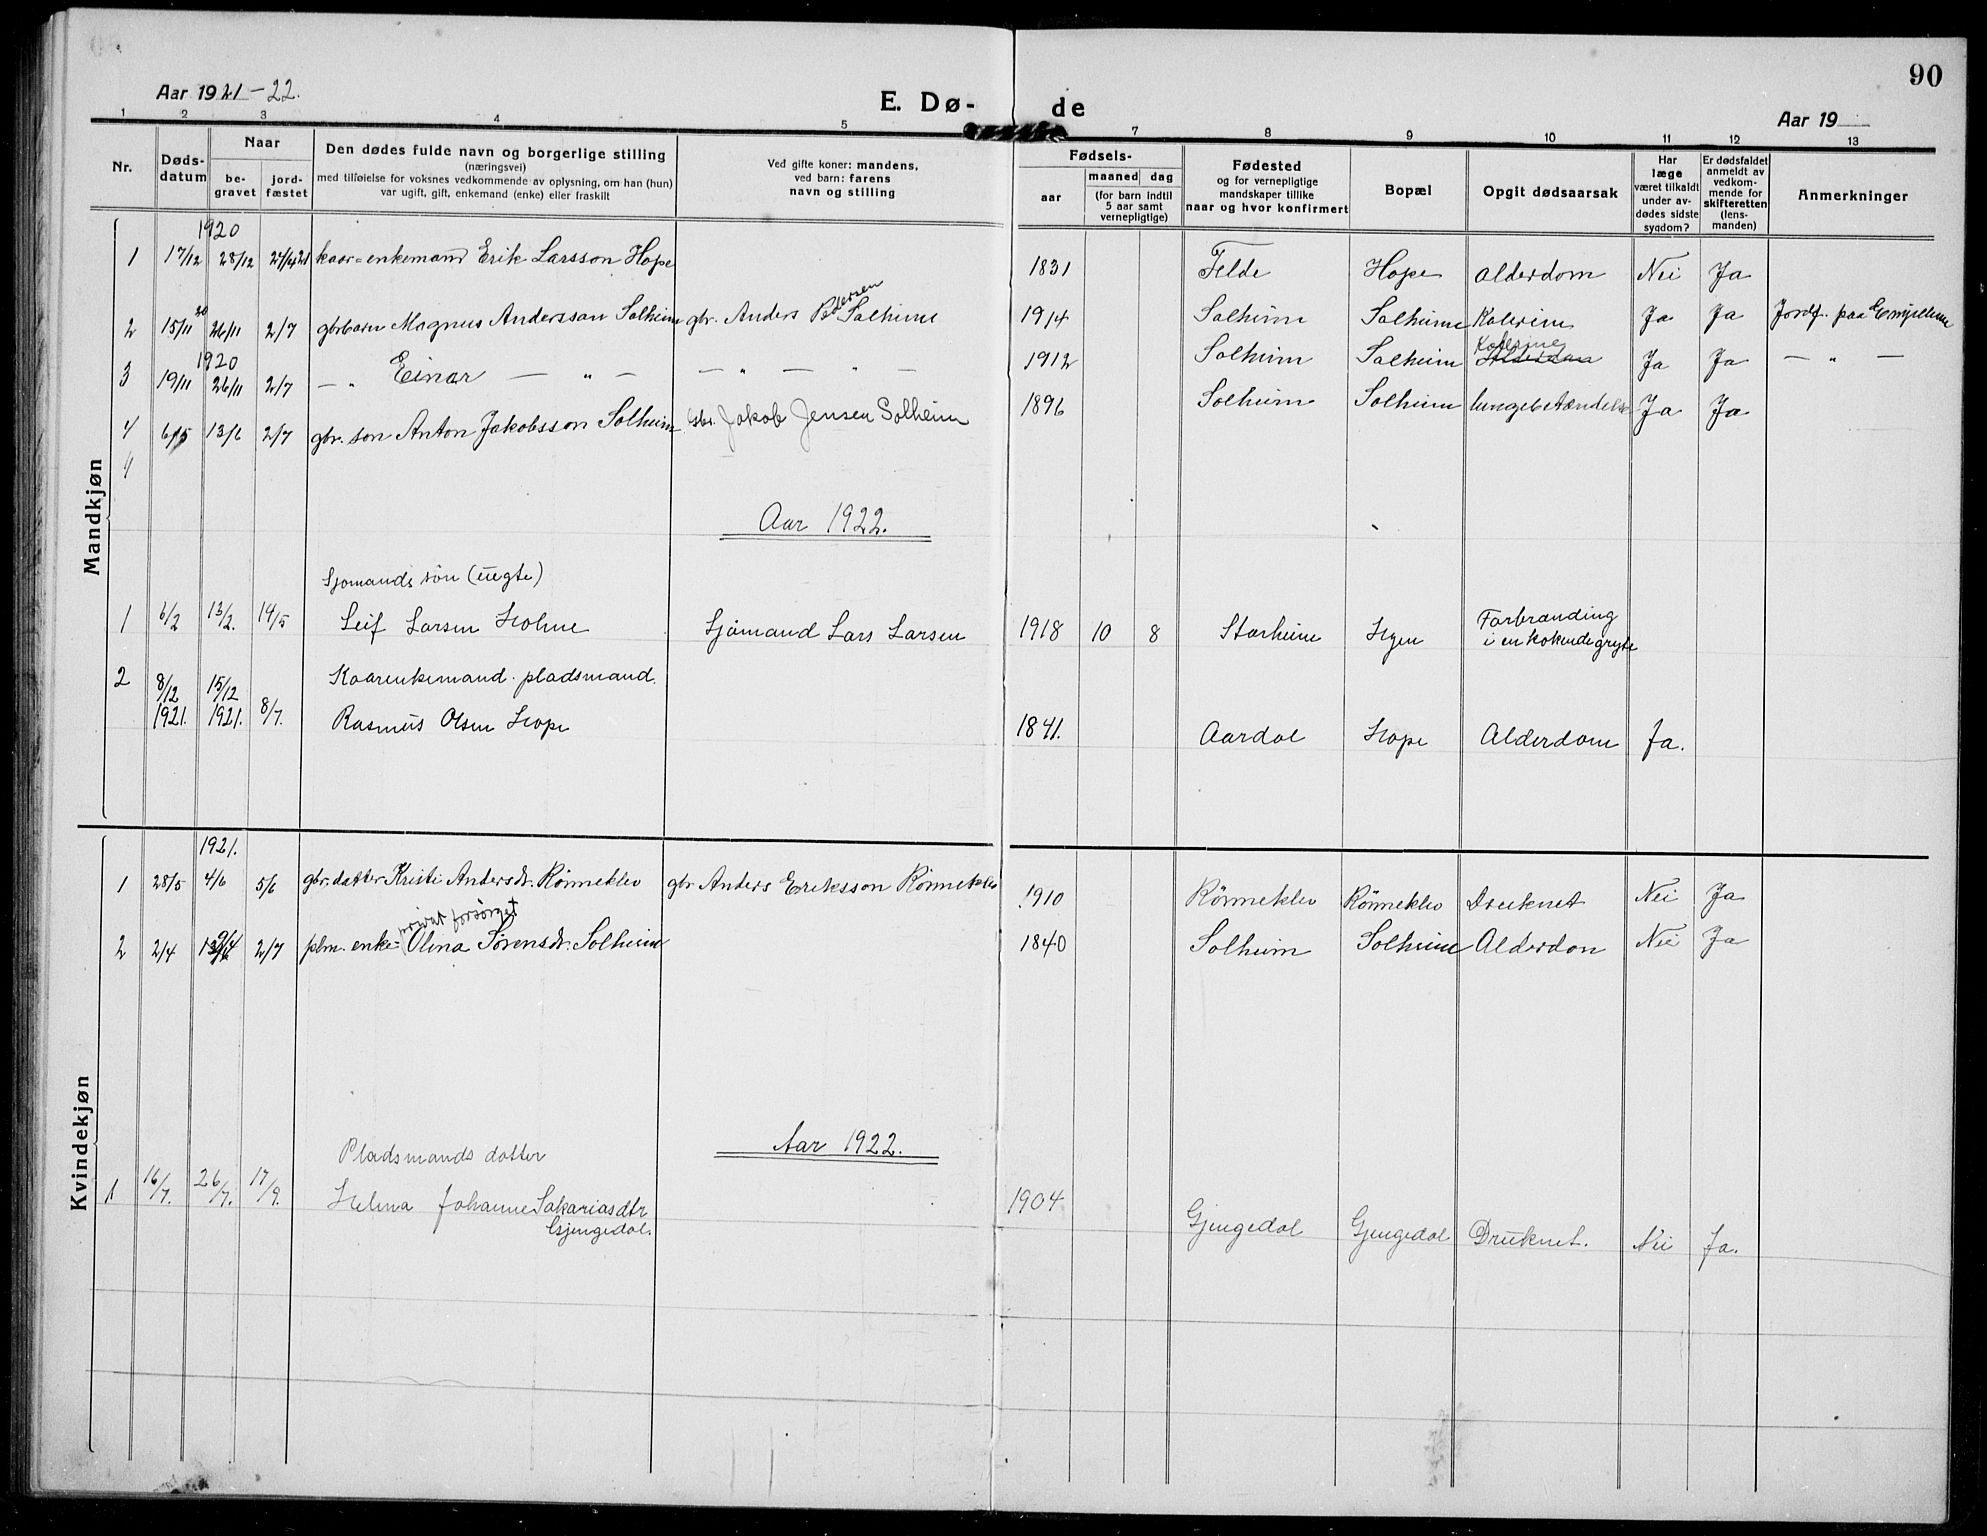 90
Aar 1921-22.
E. Dø- de
Aar 19
1 2 3 4 5 7 8 9 10 11 12 13
Nr.
Døds-
datum
Naar
be-
gravet
jord-
fæstet
Den dødes fulde navn og borgerlige stilling
(næringsvei)
med tilføielse for voksnes vedkommende av oplysning, om han (hun)
var ugift, gift, enkemand (enke) eller fraskilt
Ved gifte koner: mandens,
ved barn: farens
navn og stilling
Fødsels-
aar
maaned dag
(for barn indtil
5 aar samt
vernepligtige)
Fødested
og for vernepligtige
mandskaper tillike
naar og hvor konfirmert
Bopæl
Opgit dødsaarsak
Har
læge
været tilkaldt
under av-
dødes sidste
sygdom?
Er dødsfaldet
anmeldt av
vedkom-
mende for
skifteretten
(lens-
manden)
Anmerkninger
Mandkjøn
1920
1 17/12 28/12 24/4 21 kaar-enkemand Erik Larsson Hope 1831 Felde Hope Alderdom Nei Ja
2 15/11 20 26/11 2/7 gbrbarn Magnus Andersson Solheim gbr. Anders Pedersen Solheim 1914 Solheim Solheim Kolerine Ja Ja Jordf. paa
1920
3 19/11 26/11 2/7 — " Einar — " — — " — " — 1912 Solheim Solheim Kolerine Ja Ja — " —
4 6/5 13/6 2/7 gbr. søn Anton Jakobsson Solheim gbr. Jakob Jensen Solheim 1896 Solheim Solheim lungebetændelse Ja Ja
4
Aar 1922.
Sjomands søn (uegte)
1 6/2 13/2. 14/5 Leif Larsen Holme Sjømand Lars Larsen 1918 10 8 Starheim Hyen Forbrænding
i en kokende gryte
2 8/12 15/12 Kaarenkemand. pladsmand.
1921. 1921. 8/7. Rasmus Olsen Hope 1841. Aardal Hope Alderdom Ja.
Kvindekjøn
1921.
1 28/5 4/6 5/6 gbr. datter Kristi Andersdr. Rønneklev gbr Anders Eriksson Rønneklev 1910 Rønneklev Rønneklev Druknet Nei Ja
privat forsørget
2 2/4 2/7 plm. enke- Olina Sørensdr. Solheim 1840 Solheim Solheim Alderdom Nei Ja
Aar 1922.
Pladsmands datter
1 16/7. 26/7. 17/9. Helena Johanne Sakariasdtr
Gjengedal. 1904 Gjengedal Gjengedal Druknet. Nei Ja.